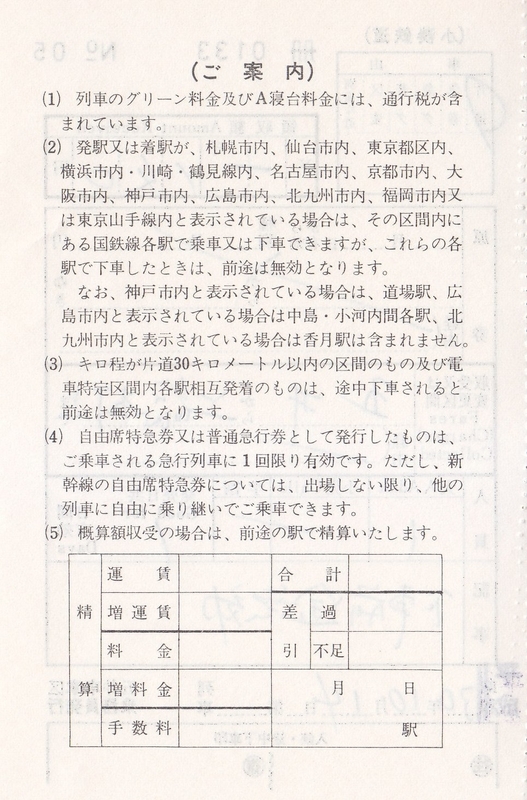 （ご案内）
(1) 列車のグリーン料金及びA寝台料金には、通行税が含
まれています。
(2) 発駅又は着駅が、札幌市内、仙台市内、東京都区内、
横浜市内・川崎・鶴見線内、名古屋市内、京都市内、大
阪市内、神戸市内、広島市内、北九州市内、福岡市内又
は東京山手線内と表示されている場合は、その区間内に
ある国鉄線各駅で乗車又は下車できますが、これらの各
駅で下車したときは、前途は無効となります。
なお、神戸市内と表示されている場合は、道場駅、広
島市内と表示されている場合は中島・小河内間各駅、北
九州市内と表示されている場合は香月駅は含まれません。
(3) キロ程が片道30キロメートル以内の区間のもの及び電
車特定区間内各駅相互発着のものは、途中下車されると
前途は無効となります。
(4) 自由席特急券又は普通急行券として発行したものは、
ご乗車される急行列車に1回限り有効です。ただし、新
幹線の自由席特急券については、出場しない限り、他の
列車に自由に乗り継いでご乗車できます。
(5) 概算額収受の場合は、前途の駅で精算いたします。
精算
運賃 合計
増運賃 差引 過
料金 不足
増料金 月 日
手数料 駅